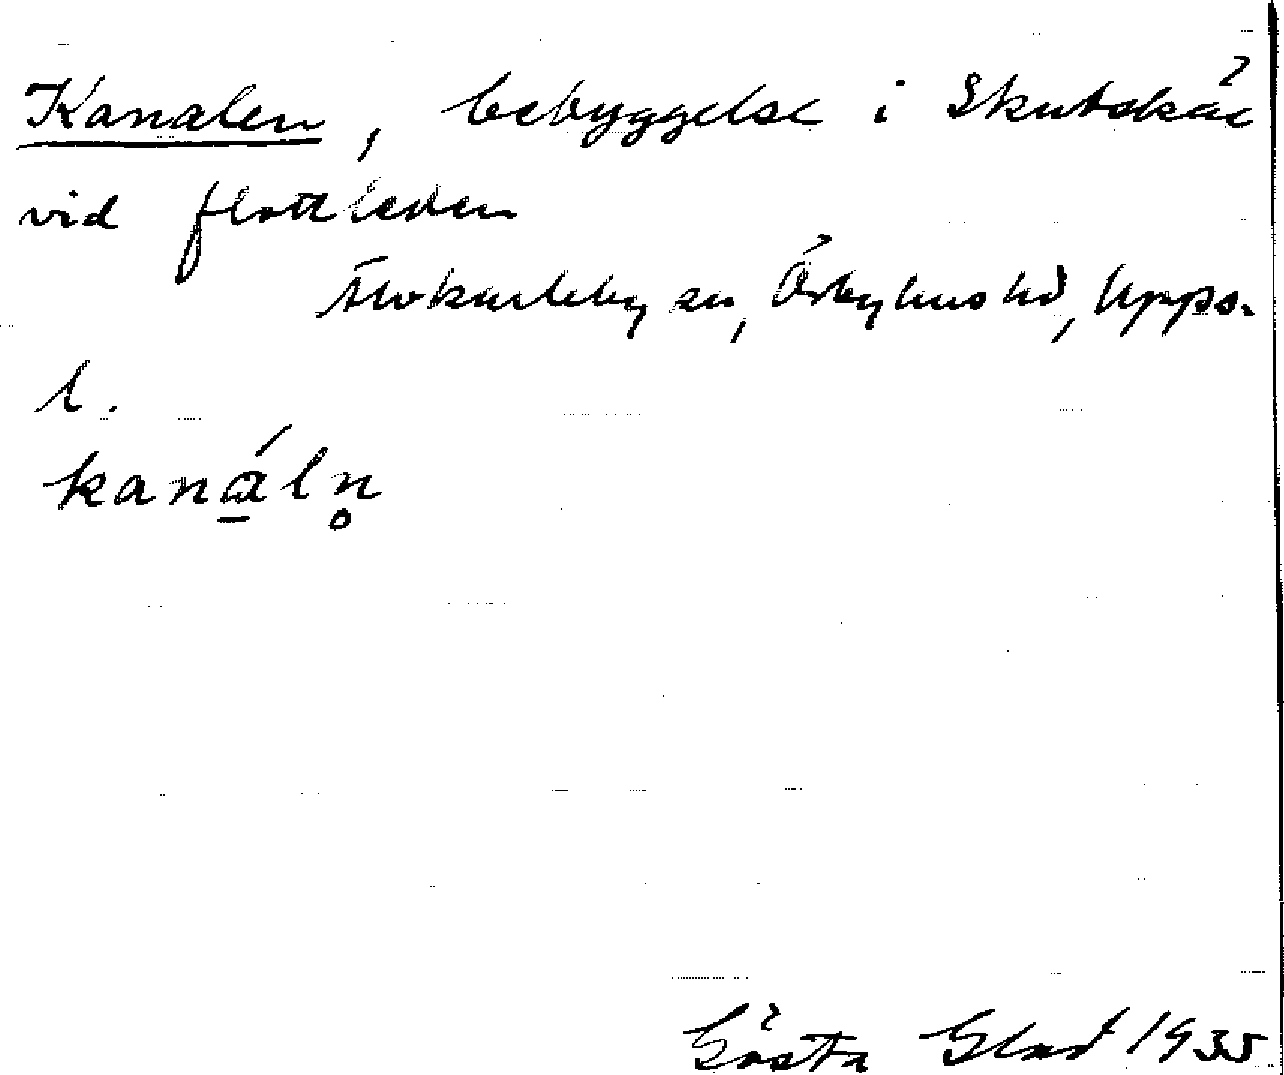 Kanalen, bebyggelse i Skutskär
vid flottleden
Älvkarleby sn, Örbyhus hd, Upps.
l.
kanáln̥
Gösta Glad 1935